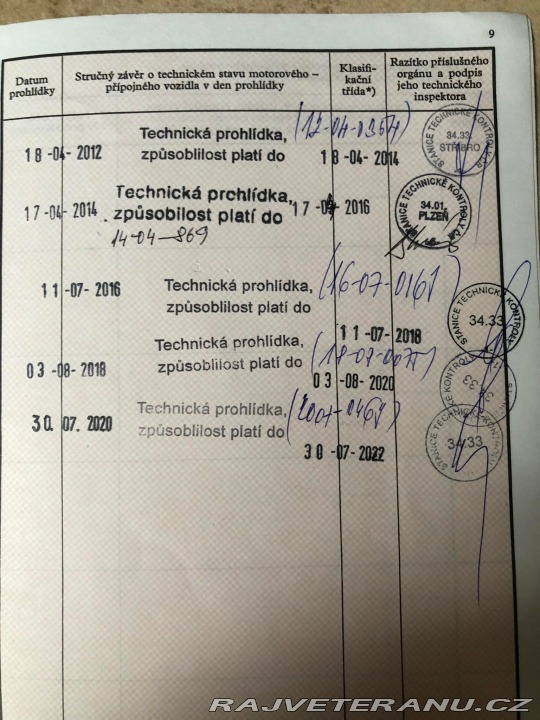 9
Datum prohlídky
Stručný závěr o technickém stavu motorového – přípojného vozidla v den prohlídky
Klasifi-kační třída*)
Razítko příslušného orgánu a podpis jeho technického inspektora
18-04-2012 Technická prohlídka, (12-04-0364)
způsoblilost platí do 18-04-2014
STANICE TECHNICKÉ KONTROLY
34.33
STŘÍBRO
17-04-2014 Technická prohlídka,
způsobilost platí do 17-04-2016
14-04-869
STANICE TECHNICKÉ KONTROLY
34.01
PLZEŇ
11-07-2016 Technická prohlídka, (16-07-0161)
způsoblilost platí do 11-07-2018
STANICE TECHNICKÉ KONTROLY
34.33
03-08-2018 Technická prohlídka,
způsoblilost platí do 03-08-2020
30.07.2020 Technická prohlídka,
způsoblilost platí do 30-07-2022
STANICE TECHNICKÉ KONTROLY
34.33
RAJVETERANU.CZ